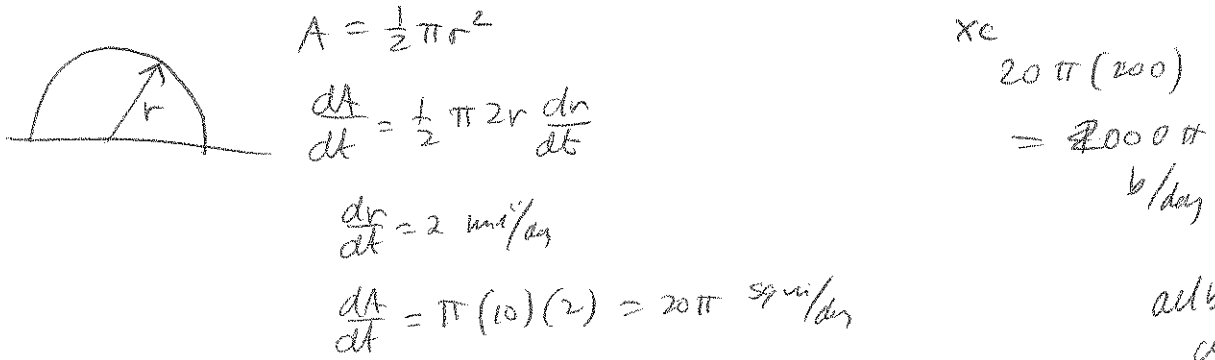 r
A = ½ π r²
dA/dt = ½ π 2r dr/dt
dr/dt = 2 mi/day
dA/dt = π (10) (2) = 20π sq mi/day
xc
20 π (200)
= 2000 π
b/day